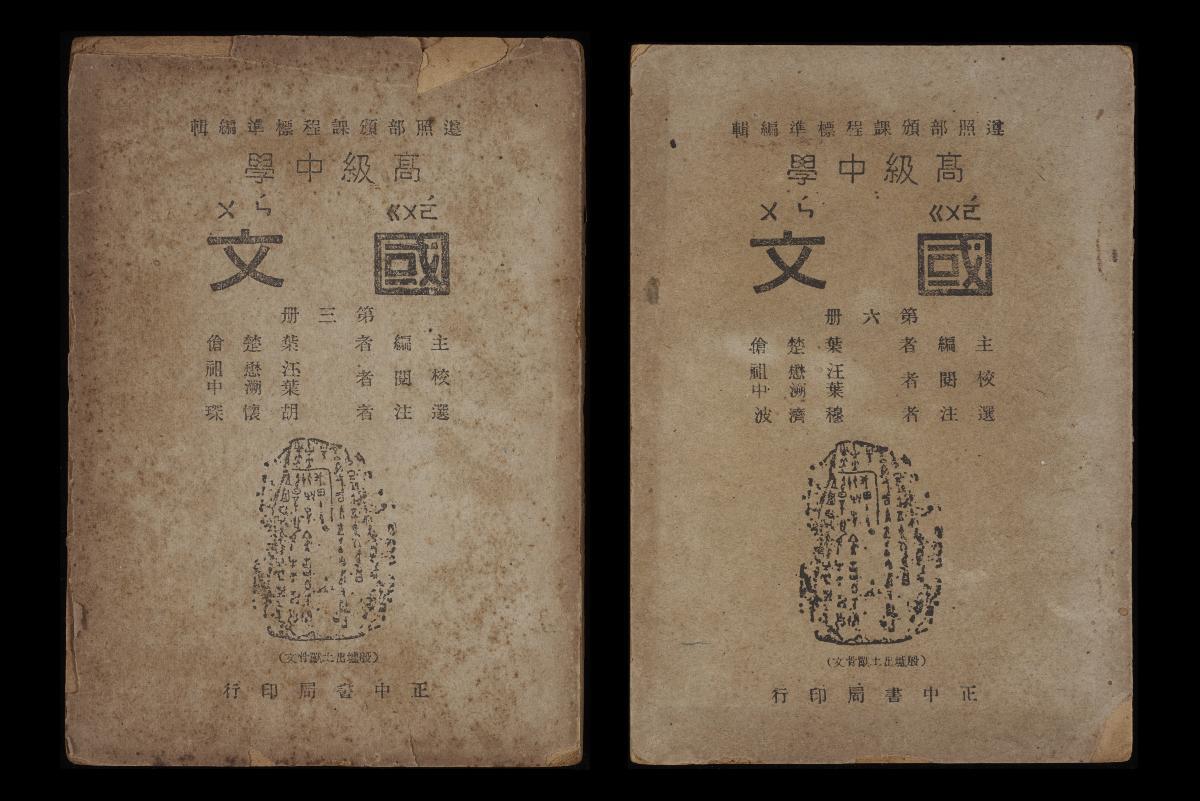 遵照部頒課程標準編輯
高級中學
ㄍㄨㄛˊ ㄨㄣˊ
國文
第三册
主編者 葉楚傖
校閱者 汪懋祖
葉溯中
選注者 胡懷琛
(殷墟出土獸骨文)
正中書局印行
遵照部頒課程標準編輯
高級中學
ㄍㄨㄛˊ ㄨㄣˊ
國文
第六册
主編者 葉楚傖
校閱者 汪懋祖
葉溯中
選注者 穆濟波
(殷墟出土獸骨文)
正中書局印行